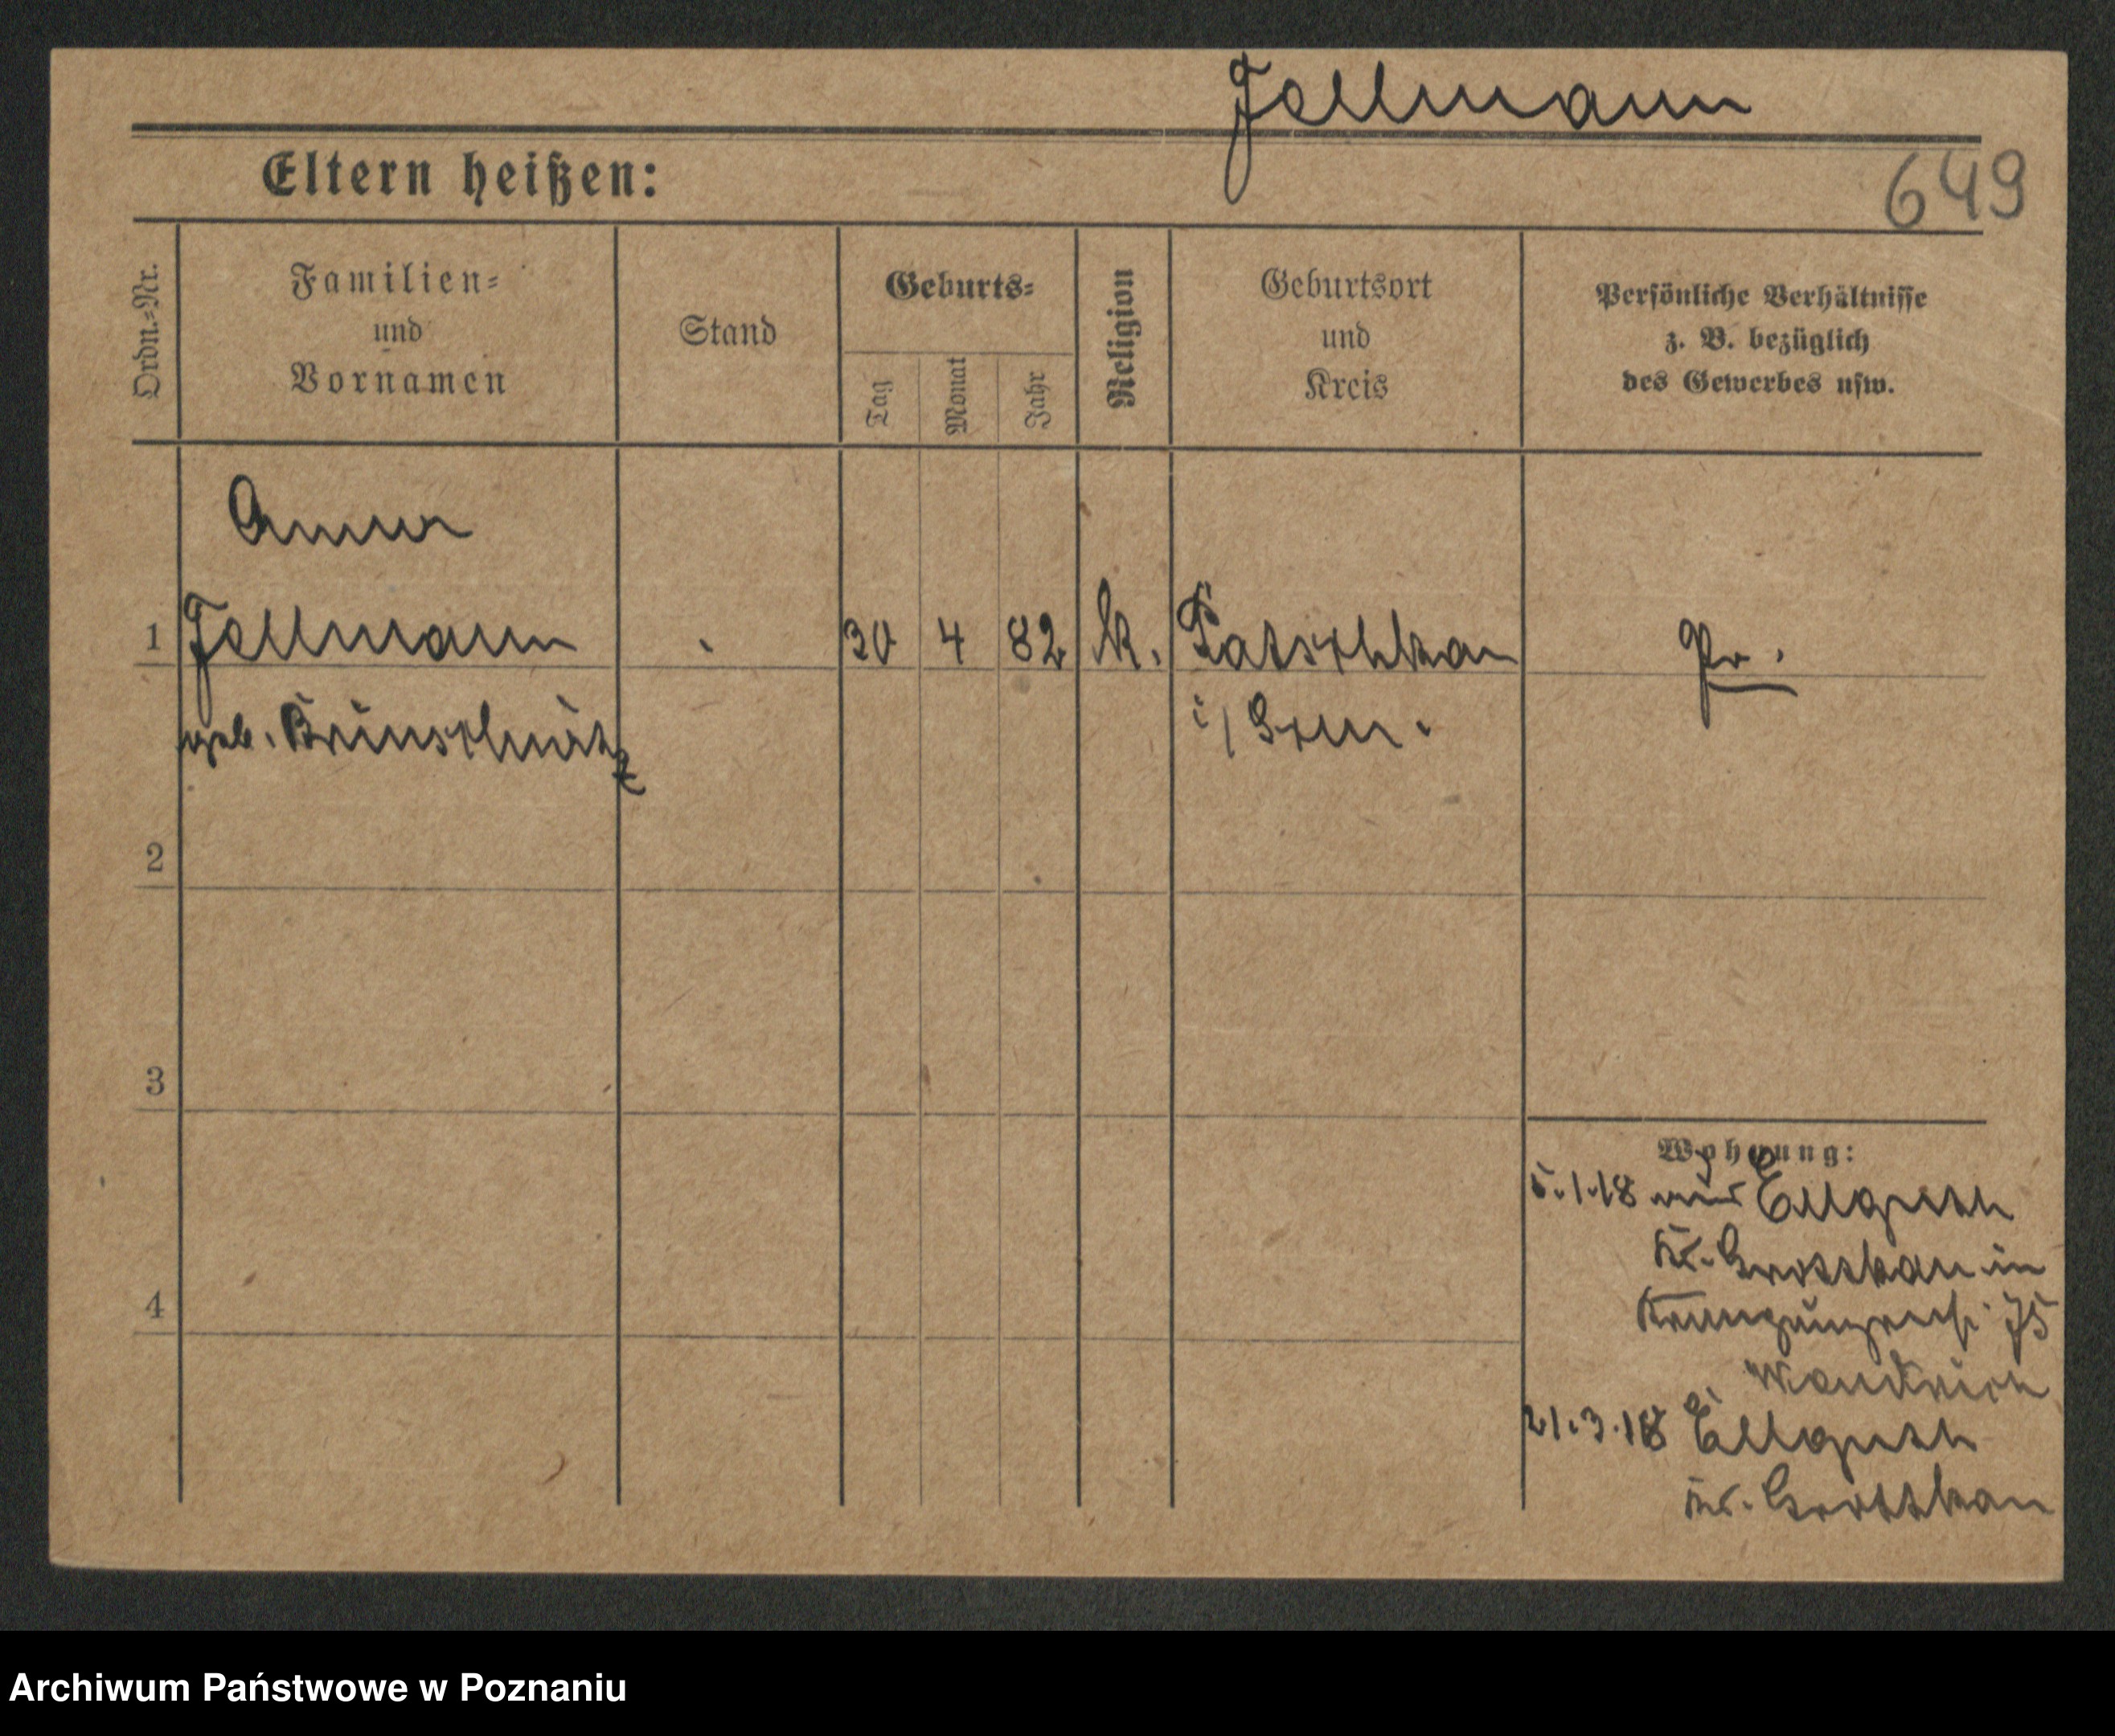 Fellmann
Eltern heißen:
649
Ordn.=Nr.
Familien=
und
Vornamen
Stand
Geburts=
Tag
Monat
Jahr
Religion
Geburtsort
und
Kreis
Persönliche Verhältnisse
z. B. bezüglich
des Gewerbes usw.
Anna
1 Fellmann 30 4 82 k. Patschkau Pr.
geb.
2
3
Wohnung:
5.1.18 aus Ellguth
Kr. Grottkau in
75
4
21.3.18 Ellguth
Kr. Grottkau
Archiwum Państwowe w Poznaniu